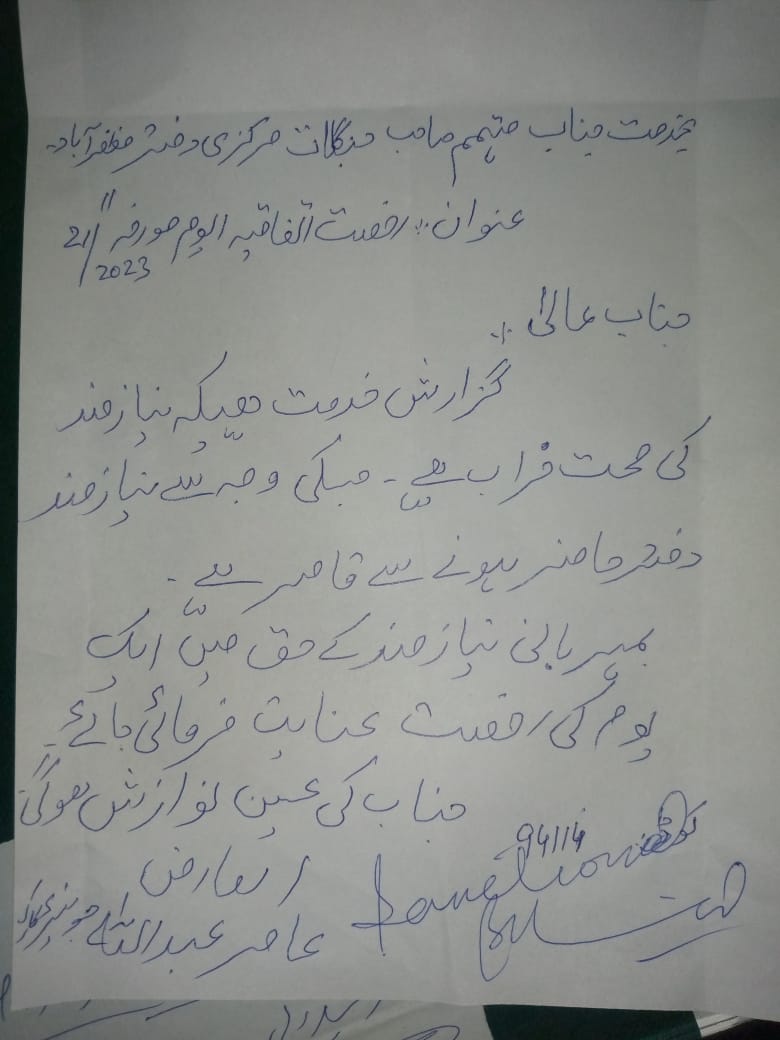 بخدمت جناب مہتمم صاحب جنگلات مرکزی دفتر مظفرآباد۔
عنوان:۔ رخصت اتفاقیہ الیوم مورخہ 21/11/2023
جناب عالیٰ :۔
گزارش خدمت ھیکہ نیازمند
کی صحت خراب ھے ۔ جسکی وجہ سے نیازمند
دفتر حاضر ہونے سے قاصر ہے ۔
بمہربانی نیازمند کے حق میں ایک
یوم کی رخصت عنایت فرمائی جائے۔
جناب کی عین نوازش ھوگی
العارض
عامر عبداللہ جونیئر کلرک